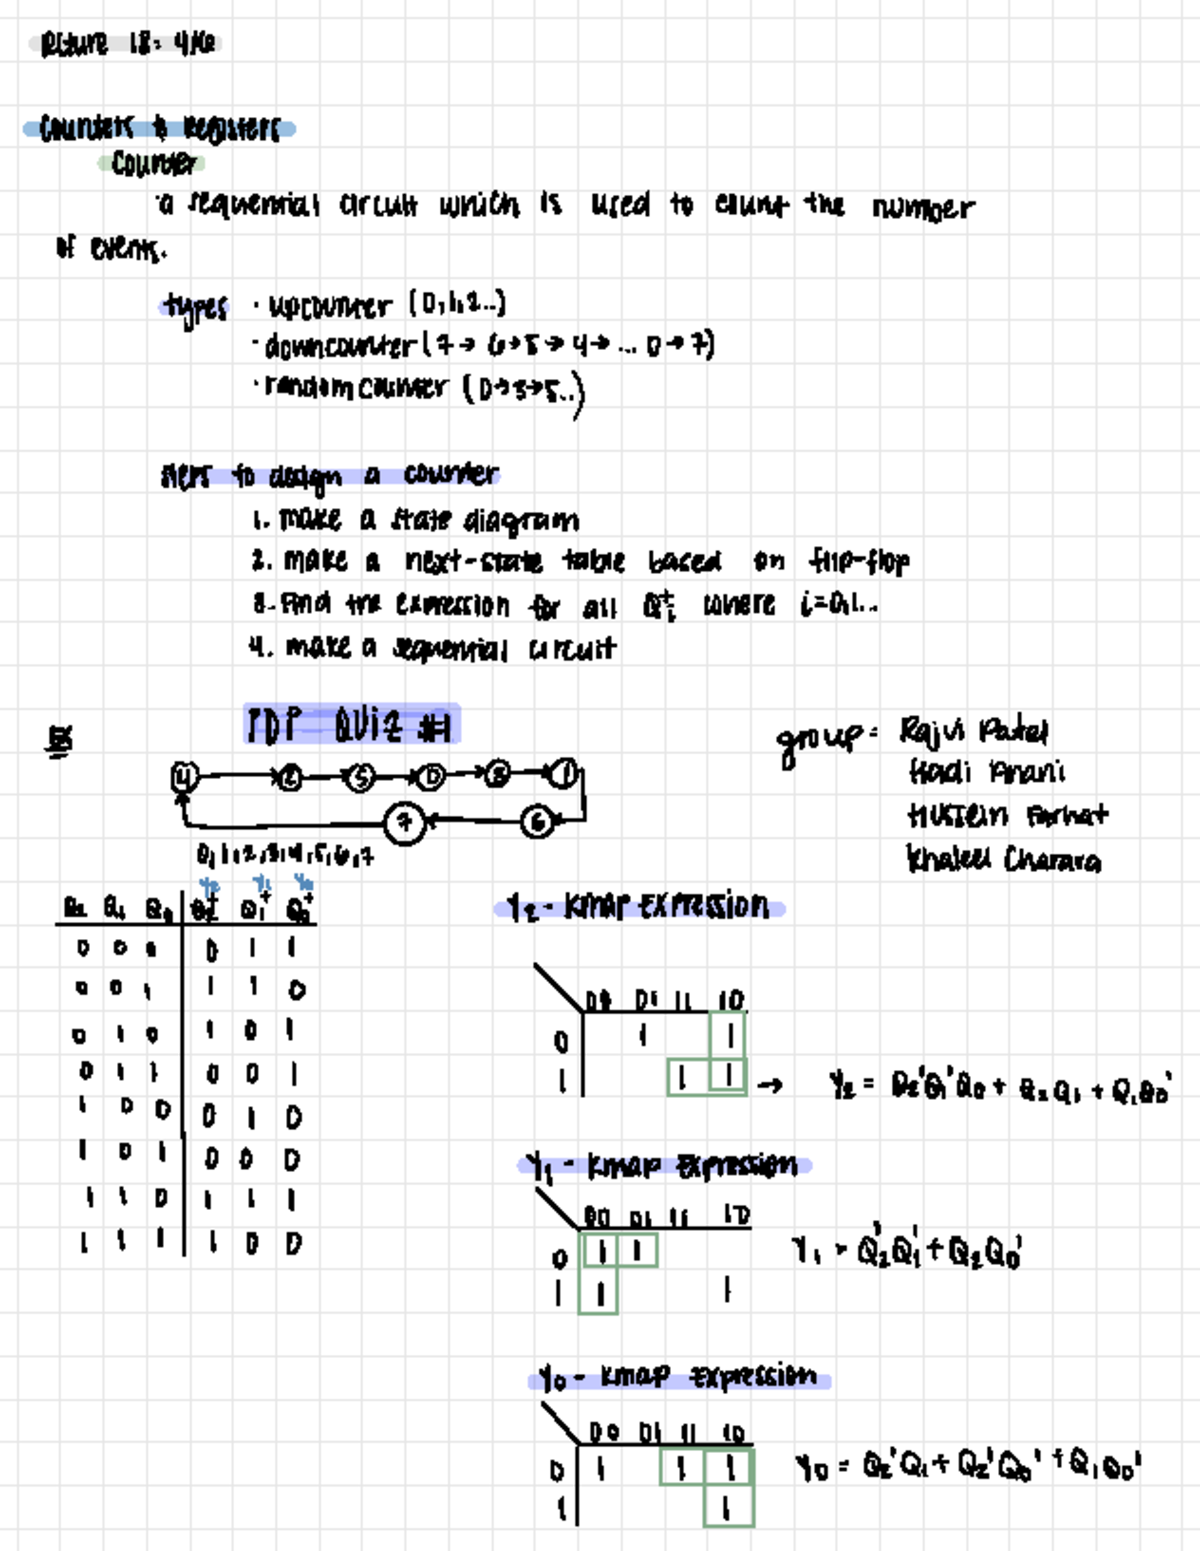 lecture 18: 4/10
Counters & Registers
Counter
·a sequential circuit which is used to count the number
of events.
types · upcounter (0,1,2..)
· downcounter (7→ 6→5→ 4→ ... 0→7)
· random counter (0→3→5..)
steps to design a counter
1. make a state diagram
2. make a next-state table based on flip-flop
3. Find the expression for all Q⁺ᵢ where i=0,1..
4. make a sequential circuit
EX
PDP QUIZ #1
group: Rajvi Patel
Hadi Anani
Hussein Farhat
Khaleel Charara
4 2 5 0 3 1
7 6
0,1,2,3,4,5,6,7
Y₂ Y₁ Y₀
Q₂ Q₁ Q₀ Q₂⁺ Q₁⁺ Q₀⁺
0 0 0 0 1 1
0 0 1 1 1 0
0 1 0 1 0 1
0 1 1 0 0 1
1 0 0 0 1 0
1 0 1 0 0 0
1 1 0 1 1 1
1 1 1 1 0 0
Y₂ - Kmap Expression
00 01 11 10
0 1 1
1 1 1 → Y₂ = Q₂'Q₁'Q₀ + Q₂Q₁ + Q₁Q₀'
Y₁ - Kmap Expression
00 01 11 10
0 1 1
1 1 1
Y₁ = Q₂'Q₁' + Q₂Q₀'
Y₀ - Kmap Expression
00 01 11 10
0 1 1 1
1 1
Y₀ = Q₂'Q₁ + Q₂'Q₀' + Q₁Q₀'